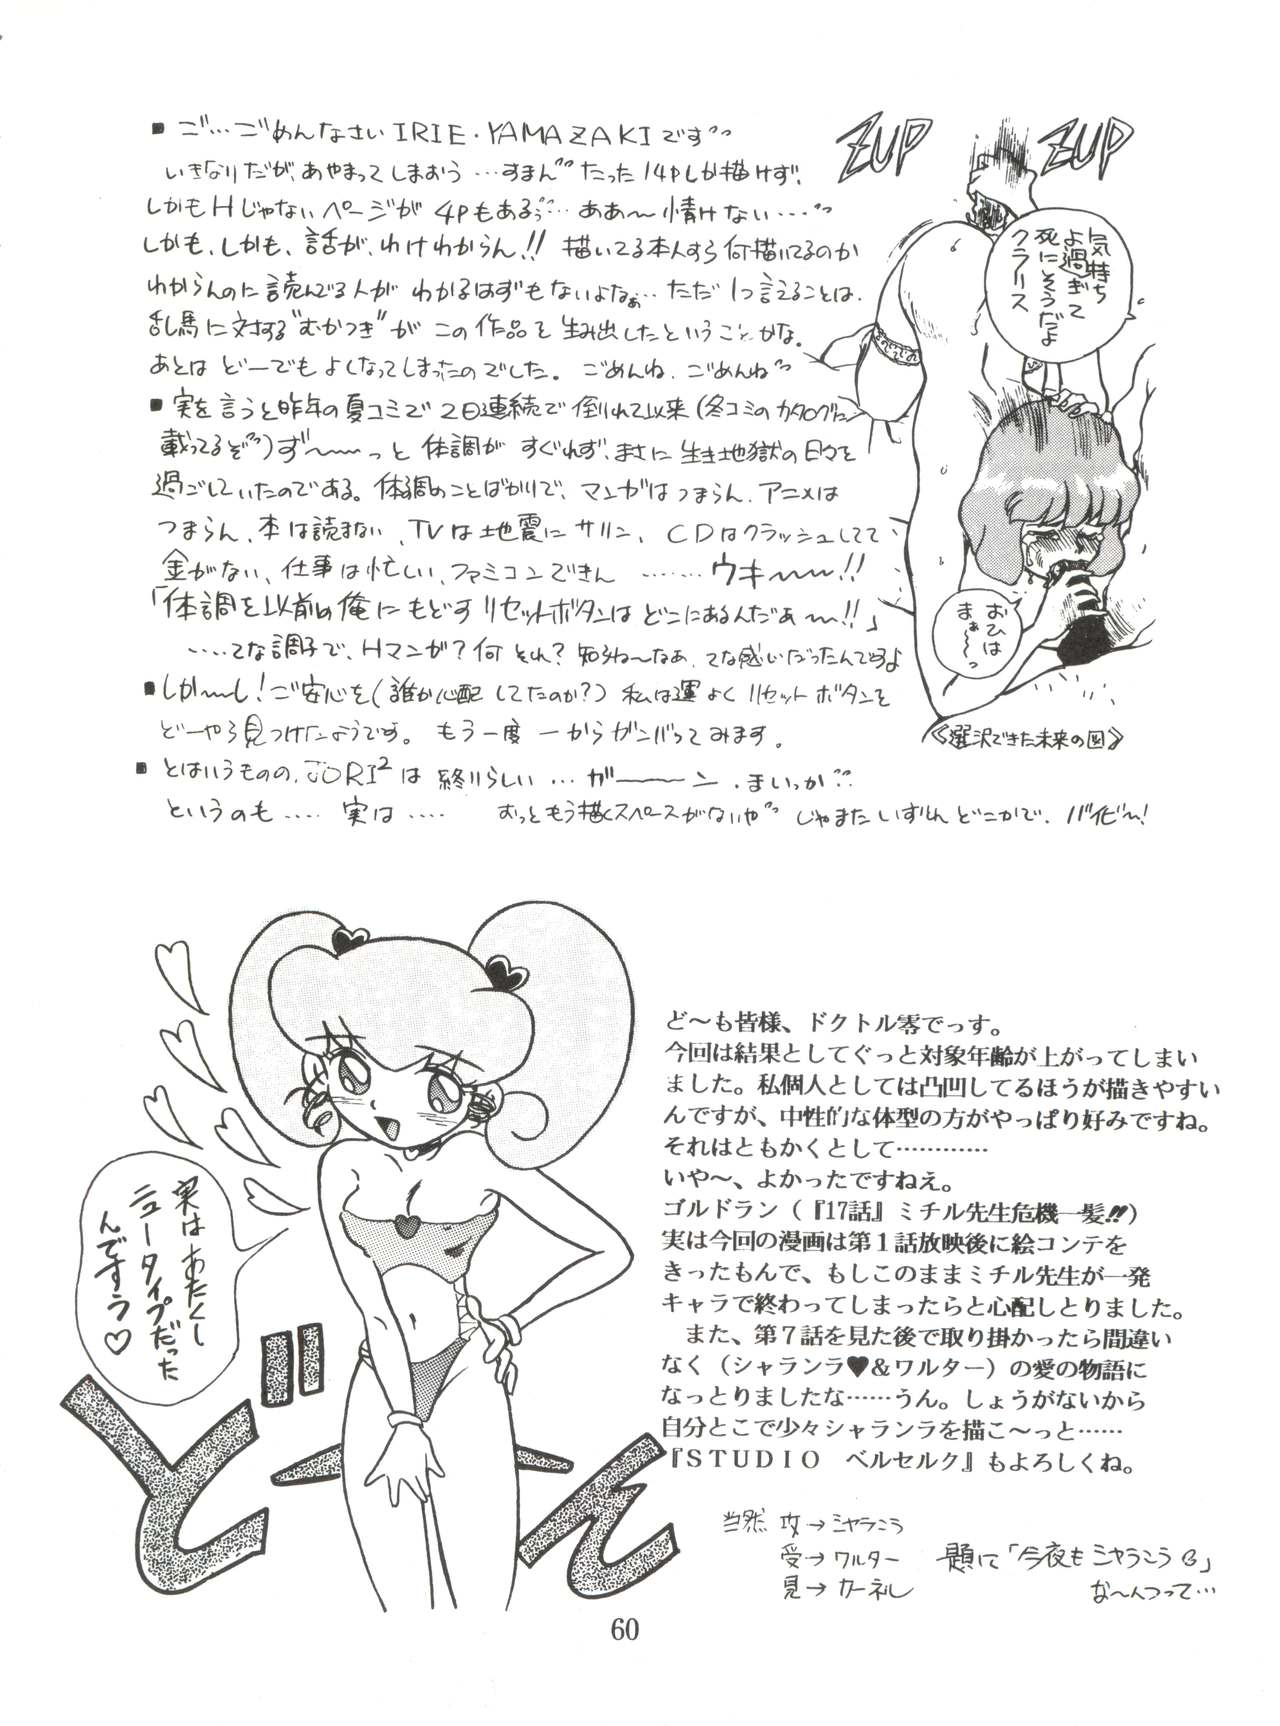 ■ ご…ごめんなさい IRIE・YAMAZAKIです
いきなりだが、あやまってしまおう…すまん たった14Pしか描けず、
しかもHじゃないページが4Pもあるぅ…ああ〜情けない…
しかも、しかも、話が、わけわからん!! 描いてる本人すら何描いてるのか
わからんのに読んでる人がわかるはずもないよなぁ…ただ1つ言えることは、
乱馬に対する“むかつき”がこの作品を生み出したということかな。
あとはどーでもよくなってしまったのでした。ごめんね、ごめんね
■ 実を言うと昨年の夏コミで2日連続で倒れて以来(冬コミのカタログに
載ってるぞ)ず〜〜っと体調がすぐれず、まさに生き地獄の日々を
過ごしていたのである。体調のことばかりで、マンガはつまらん、アニメは
つまらん、本は読まない、TVは地震にサリン、CDはクラッシュしてて
金がない、仕事は忙しい、ファミコンできん ……ウキ〜〜!!
「体調を以前の俺にもどすリセットボタンはどこにあるんだぁ〜!!」
……てな調子で、Hマンガ?何それ?知らね〜なぁ、てな感じだったんですよ
■ しか〜〜し!ご安心を(誰か心配してたのか?)私は運よくリセットボタンを
どーやら見つけたようです。もう一度一からガンバってみます。
■ とはいうものの、JORI²は終りらしい…ガーーン、まいっか
というのも…… 実は…… おっともう描くスペースがないや じゃまたいずれどこかで、バイビ〜!
ZUP
ZUP
気持ち
よ過ぎて
死にそうだよ
クラリス
おひは
まぁ〜〜っ
《選択できた未来の図》
ど〜も皆様、ドクトル零でっす。
今回は結果としてぐっと対象年齢が上がってしまい
ました。私個人としては凸凹してるほうが描きやすい
んですが、中性的な体型の方がやっぱり好みですね。
それはともかくとして…………
いや〜、よかったですねえ。
ゴルドラン(『17話』ミチル先生危機一髪!!)
実は今回の漫画は第1話放映後に絵コンテを
きったもんで、もしこのままミチル先生が一発
キャラで終わってしまったらと心配しとりました。
また、第7話を見た後で取り掛かったら間違い
なく(シャランラ♥&ワルター)の愛の物語に
なっとりましたな……うん。しょうがないから
自分とこで少々シャランラを描こ〜っと……
『STUDIO ベルセルク』もよろしくね。
当然 攻→シャラこう
受→ワルター
見→カーネル
題に「今夜もシャラこう」
な〜んつって…
実はあたくし
ニュータイプだった
んですう♡
ど〜ん
60